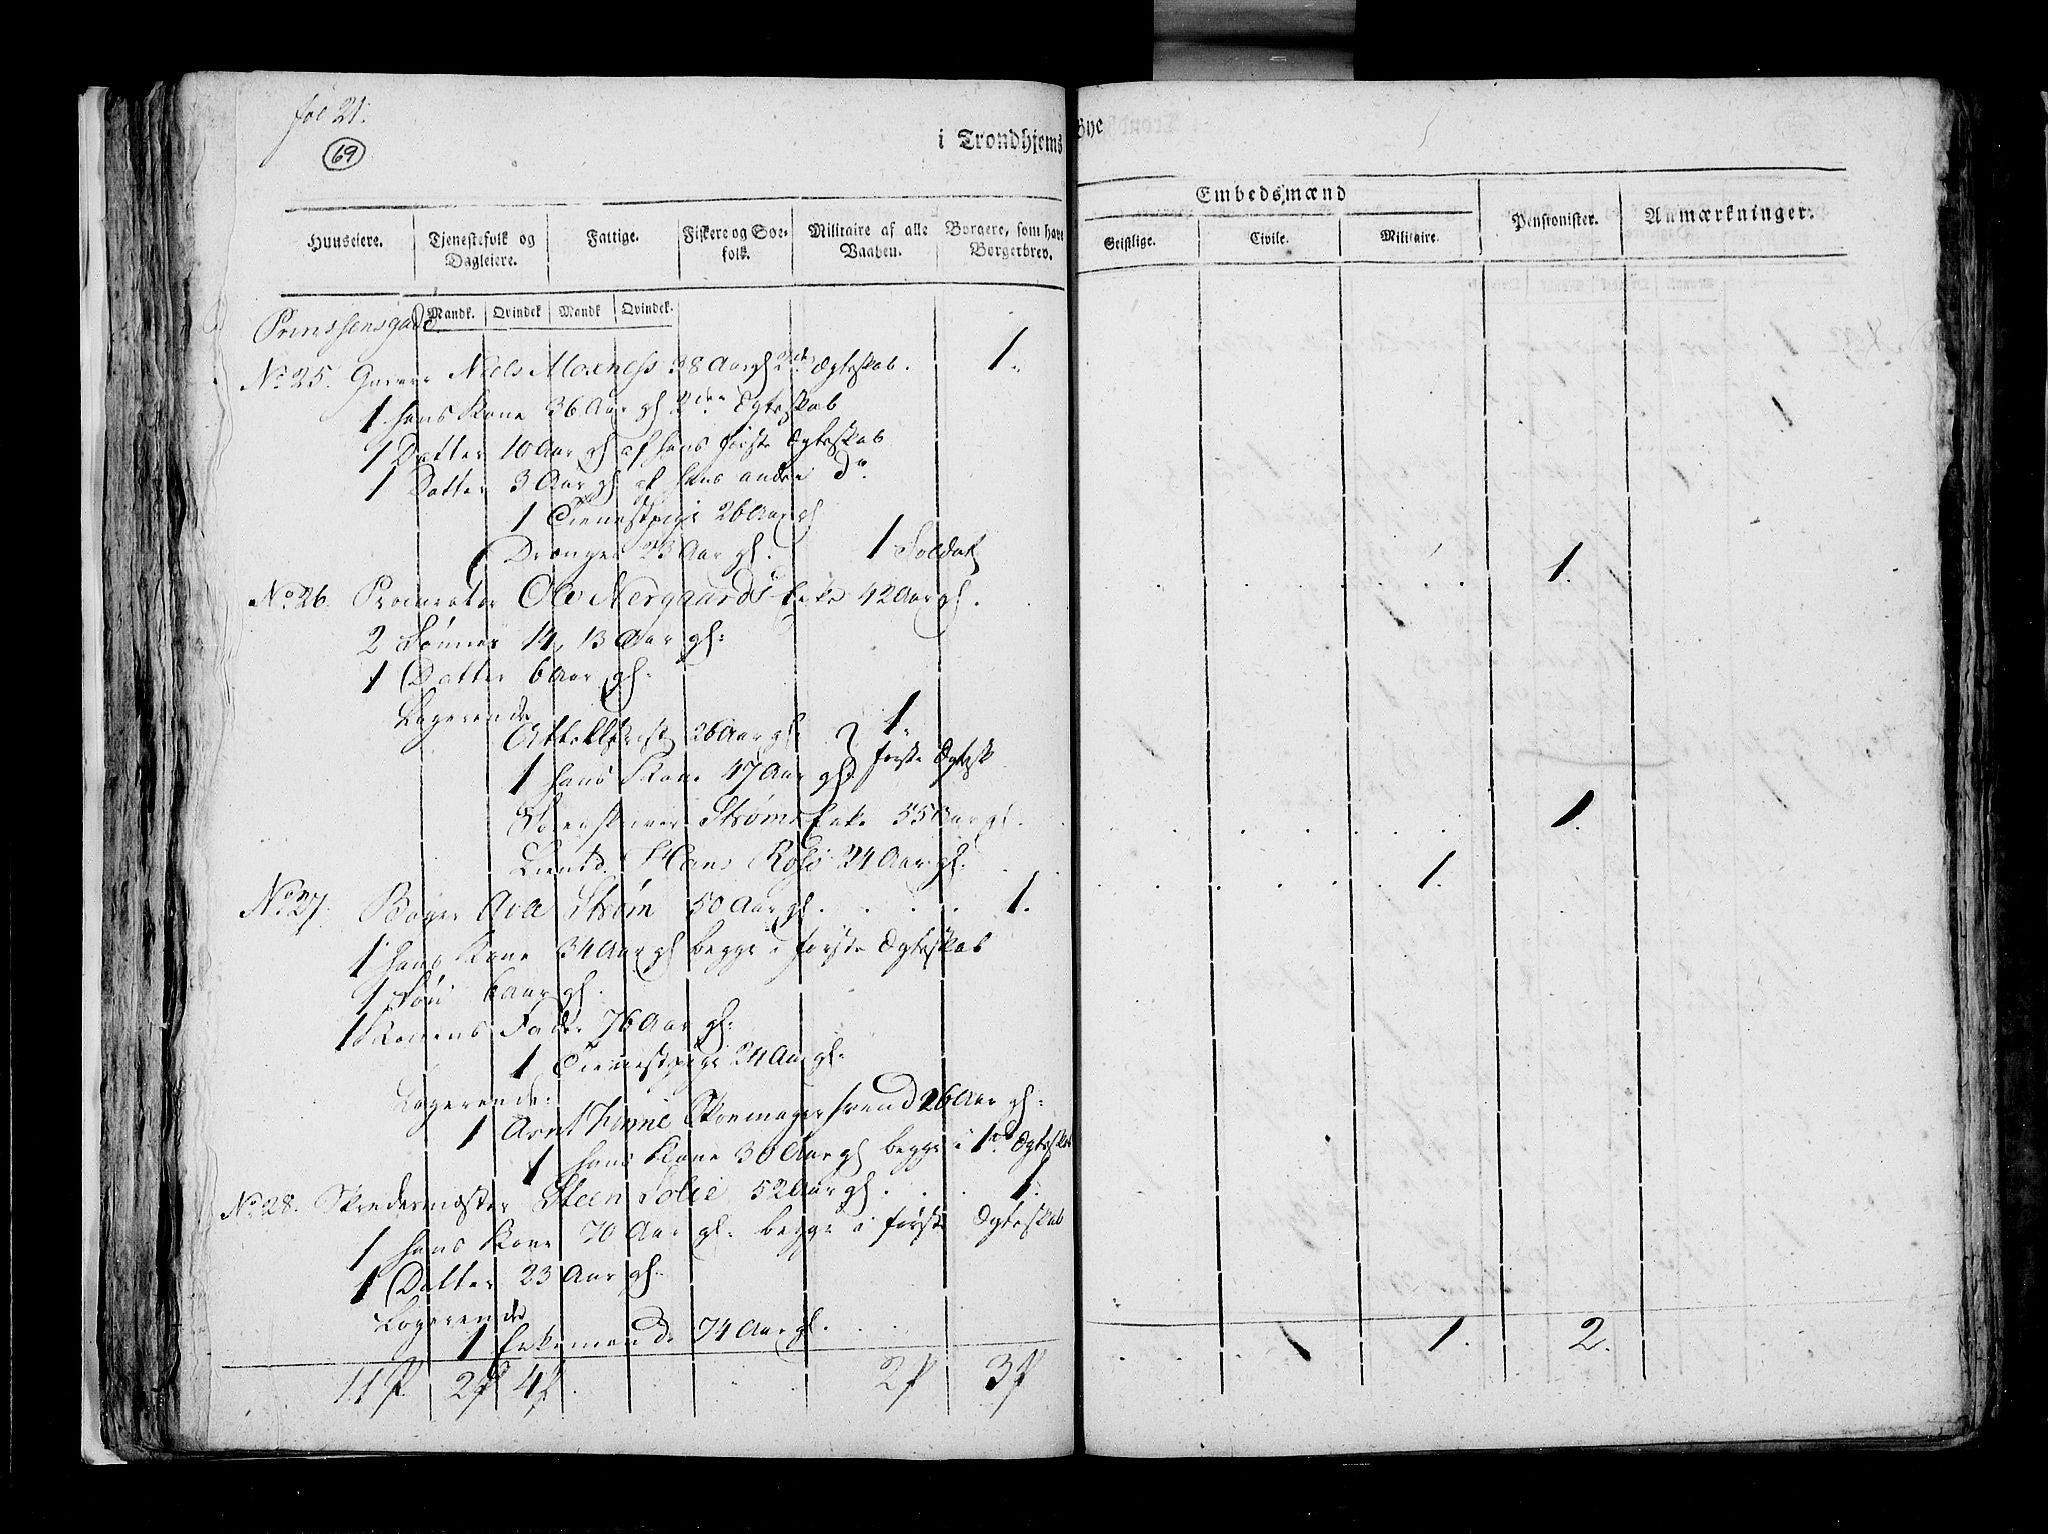 fol 21.
69
i Trondhjems Bye
Huuseiere. Tjenestefolk og Dagleiere. Fattige. Fiskere og Søefolk. Militaire af alle Vaaben. Borgere, som have Borgerbrev. Embedsmænd Geistlige. Civile. Militaire. Pensionister. Anmærkninger.
Mandk. Qvindek Mandk Qvindek.
Prinssensgade
No 25. Niels Moxness 38 Aar gl 2de Ægteskab. 1.
1 hans Kone 36 Aar gl 2den Ægteskab
1 Datter 10 Aar gl af hans første Ægteskab
1 Datter 3 Aar gl af hans andre do
1 Tienestpige 26 Aar gl
Drenge 23 Aar gl. 1 Soldat
No 26. Procurator Ole Nergaards Enke 42 Aar gl. 1.
2 Sønner 14, 13 Aar gl:
1 Datter 6 Aar gl.
Logerende
26 Aar gl. 1.
1 hans Kone 47 Aar gl første Ægtesk
Sorenskriver Strøms Enke 55 Aar gl. 1.
Lieutd. Hans Rosø 24 Aar gl. 1.
No 27. Bager Ave Strøm 50 Aar gl. 1.
1 hans Kone 34 Aar gl begge i første Ægteskab
1 Søn 6 Aar gl.
1 Konens Fader 76 Aar gl:
1 Tienestpige 24 Aar gl:
Logerende:
1 Arnt Skoemagersvend 26 Aar gl:
1 hans Kone 30 Aar gl begge i 1te Ægteskab
No 28. Skredermester Steen Solie 52 Aar gl. 1.
1 hans Kone 70 Aar gl: begge i første Ægteskab
1 Datter 23 Aar gl.
Logerende
1 Enkemand 74 Aar gl.
11 P 2 P 4 P. 2 P 3 P 1. 2.